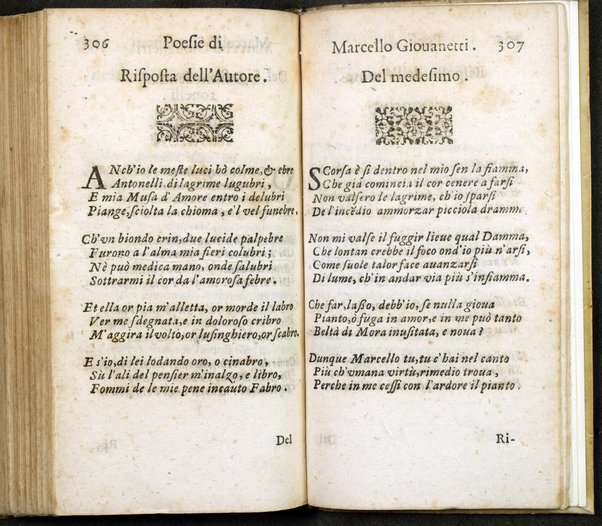 306 Poesie di
Risposta dell'Autore.
ANch'io le meste luci hò colme, & ebre
Antonelli, di lagrime lugubri,
E mia Musa d'Amore entro i delubri
Piange, sciolta la chioma, e'l vel funebre.
Ch'vn biondo crin, due lucide palpebre
Furono a l'alma mia fieri colubri;
Nè può medica mano, onde salubri
Sottrarmi il cor da l'amorosa febre.
Et ella or pia m'alletta, or morde il labro
Ver me sdegnata, e in doloroso cribro
M'aggira il volto, or lusinghiero, or scabro.
E s'io, di lei lodando oro, o cinabro,
Sù l'ali del pensier m'inalzo, e libro,
Fommi de le mie pene incauto Fabro.
Del
Marcello Giouanetti. 307
Del medesimo.
SCorsa è sì dentro nel mio sen la fiamma,
Che già comincia il cor cenere a farsi
Non valsero le lagrime, ch'io sparsi
De l'incēdio ammorzar picciola dramma
Non mi valse il fuggir lieue qual Damma,
Che lontan crebbe il foco ond'io più n'arsi,
Come suole talor face auanzarsi
Di lume, ch'in andar via più s'infiamma.
Che far, lasso, debb'io, se nulla gioua
Pianto, ò fuga in amor, e in me può tanto
Beltà di Mora inusitata, e noua?
Dunque Marcello tu, tu c'hai nel canto
Più ch'vmana virtù, rimedio troua,
Perche in me cessi con l'ardore il pianto.
Ri-